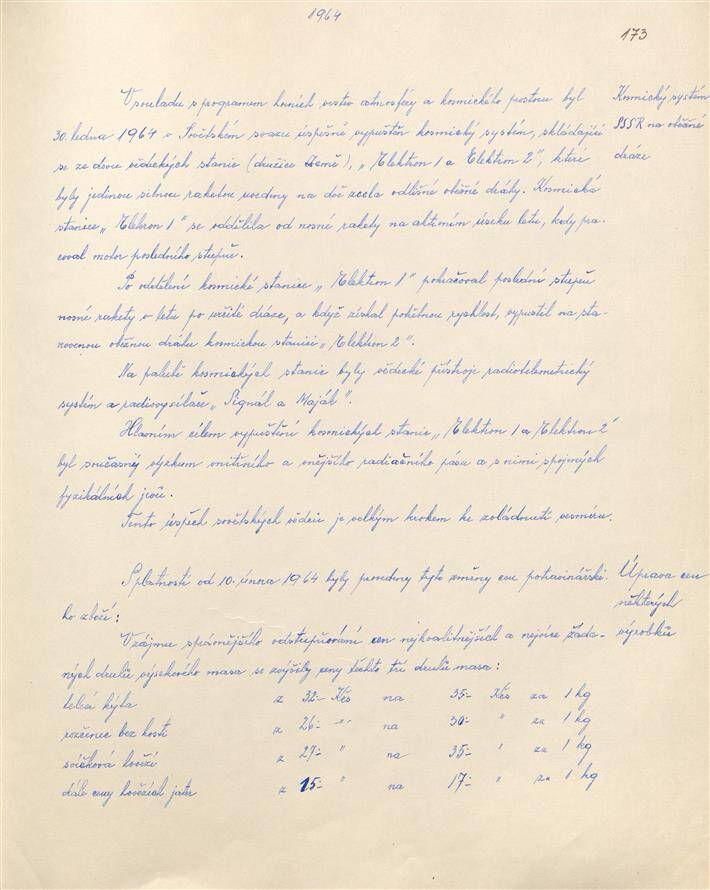 1964
173
V souladu s programem horních vrstev atmosféry a kosmického prostoru byl
Kosmický systém
30. ledna 1964 v Sovětském svazu úspěšně vypuštěn kosmický systém, skládající
SSSR na oběžné
se ze dvou vědeckých stanic (družice Země), "Elektron 1 a Elektron 2", které
dráze
byly jedinou silnou raketou uvedeny na dvě zcela odlišné oběžné dráhy. Kosmická
stanice "Elektron 1" se oddělila od nosné rakety na aktivním úseku letu, kdy pra-
coval motor posledního stupně.
Po oddělení kosmické stanice "Elektron 1" pokračoval poslední stupeň
nosné rakety v letu po určité dráze, a když získal potřebnou rychlost, vypustil na sta-
novenou oběžnou dráhu kosmickou stanici "Elektron 2".
Na palubě kosmických stanic byly vědecké přístroje radiotelemetrický
systém a radiovysílače "Signál a Maják".
Hlavním cílem vypuštění kosmických stanic "Elektron 1 a Elektron 2"
byl současný výzkum vnitřního a vnějšího radiačního pásu a s nimi spojených
fyzikálních jevů.
Tento úspěch sovětských vědců je velkým krokem ke zvládnutí vesmíru.
Splatností od 10. února 1964 byly provedeny tyto změny cen potravinářské-
Úprava cen
ho zboží:
některých
V zájmu správnějšího odstupňování cen nejkvalitnějších a nejvíce žáda-
výrobků
ných druhů výsekového masa se zvýšily ceny těchto tří druhů masa:
telecí kýta z 32.- Kčs na 35.- Kčs za 1 kg
roštěnec bez kosti z 26.- " na 30.- " za 1 kg
svíčková hovězí z 27.- " na 35.- " za 1 kg
dále ceny hovězích jater z 15.- " na 17.- " za 1 kg